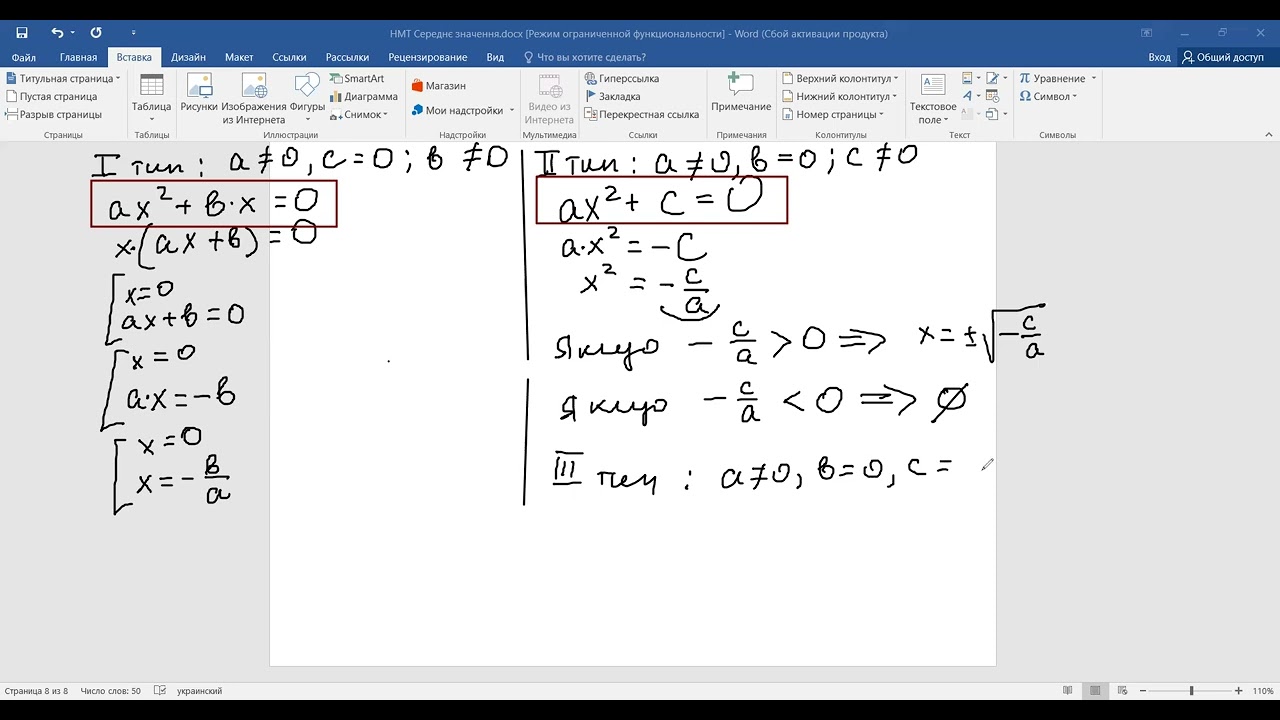 НМТ Середнє значення.docx [Режим ограниченной функциональности] - Word (Сбой активации продукта)
Файл Главная Вставка Дизайн Макет Ссылки Рассылки Рецензирование Вид Что вы хотите сделать? Вход Общий доступ
Титульная страница
Пустая страница
Разрыв страницы
Страницы
Таблица
Таблицы
Рисунки
Изображения из Интернета
Фигуры
SmartArt
Диаграмма
Снимок
Иллюстрации
Магазин
Мои надстройки
Надстройки
Видео из Интернета
Мультимедиа
Гиперссылка
Закладка
Перекрестная ссылка
Ссылки
Примечание
Примечания
Верхний колонтитул
Нижний колонтитул
Номер страницы
Колонтитулы
Текстовое поле
Текст
π Уравнение
Ω Символ
Символы
I тип : a ≠ 0, c = 0 ; в ≠ 0
ax² + в·x = 0
x·(ax + в) = 0
[ x = 0
ax + в = 0
[ x = 0
a·x = -в
[ x = 0
x = - в/a
II тип : a ≠ 0, в = 0 ; c ≠ 0
ax² + c = 0
a·x² = -c
x² = - c/a
Якщо - c/a > 0 => x = ±√(-c/a)
Якщо - c/a < 0 => ∅
III тип : a ≠ 0, в = 0, c =
Страница 8 из 8 Число слов: 50 украинский 110%